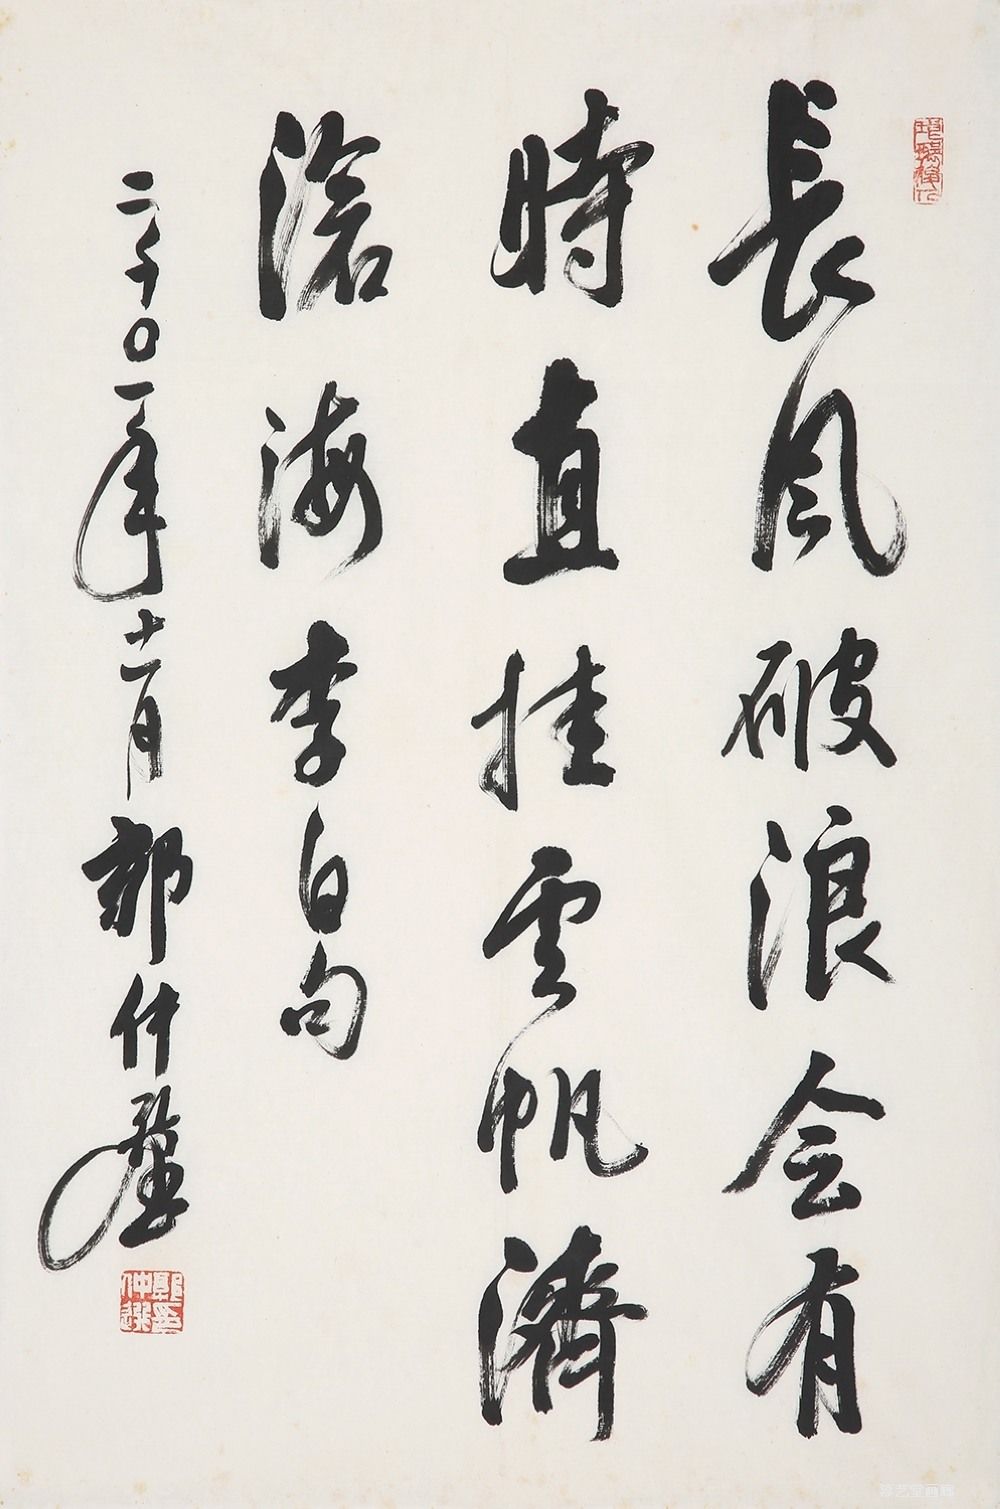 長風破浪会有
時直挂雲帆濟
滄海李白句
二千〇一年十二月郭仲選
郭印仲選